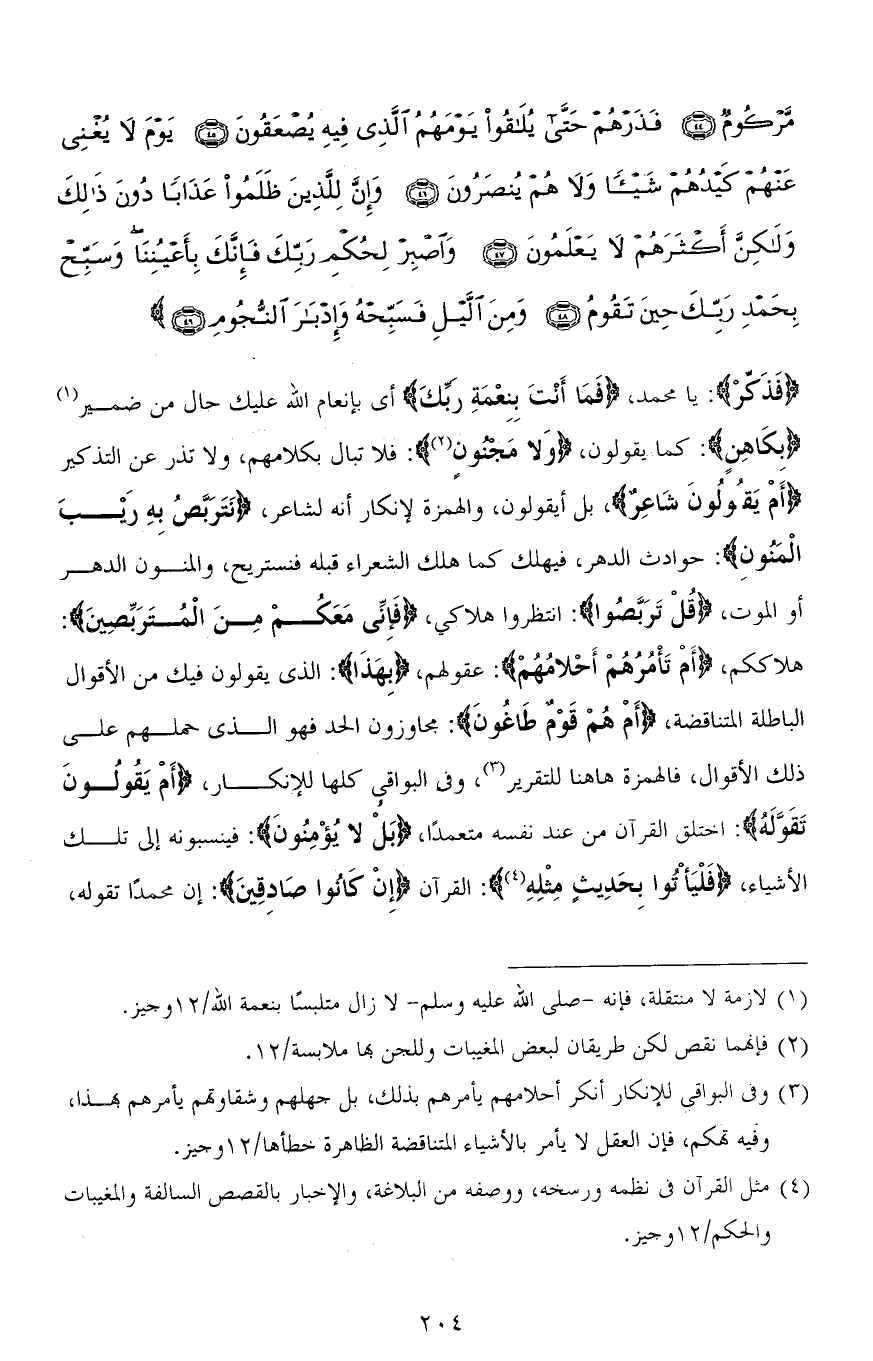 مَّرْكُومٌ ﴿٤٤﴾ فَذَرْهُمْ حَتَّىٰ يُلَـٰقُوا۟ يَوْمَهُمُ ٱلَّذِى فِيهِ يُصْعَقُونَ ﴿٤٥﴾ يَوْمَ لَا يُغْنِى
عَنْهُمْ كَيْدُهُمْ شَيْـًٔا وَلَا هُمْ يُنصَرُونَ ﴿٤٦﴾ وَإِنَّ لِلَّذِينَ ظَلَمُوا۟ عَذَابًا دُونَ ذَٰلِكَ
وَلَـٰكِنَّ أَكْثَرَهُمْ لَا يَعْلَمُونَ ﴿٤٧﴾ وَٱصْبِرْ لِحُكْمِ رَبِّكَ فَإِنَّكَ بِأَعْيُنِنَا ۖ وَسَبِّحْ
بِحَمْدِ رَبِّكَ حِينَ تَقُومُ ﴿٤٨﴾ وَمِنَ ٱلَّيْلِ فَسَبِّحْهُ وَإِدْبَـٰرَ ٱلنُّجُومِ ﴿٤٩﴾ ﴾
﴿فَذَكِّرْ﴾: يا محمد، ﴿فَمَا أَنْتَ بِنِعْمَةِ رَبِّكَ﴾ أى بإنعام الله عليك حال من ضمير(١)
﴿بِكَاهِنٍ﴾: كما يقولون، ﴿وَلا مَجْنُونٍ(٢)﴾: فلا تبال بكلامهم، ولا تذر عن التذكير
﴿أَمْ يَقُولُونَ شَاعِرٌ﴾، بل أيقولون، والهمزة لإنكار أنه لشاعر، ﴿نَتَرَبَّصُ بِهِ رَيْبَ
الْمَنُونِ﴾: حوادث الدهر، فيهلك كما هلك الشعراء قبله فنستريح، والمنون الدهر
أو الموت، ﴿قُلْ تَرَبَّصُوا﴾: انتظروا هلاكي، ﴿فَإِنِّى مَعَكُمْ مِنَ الْمُتَرَبِّصِينَ﴾:
هلاككم، ﴿أَمْ تَأْمُرُهُمْ أَحْلامُهُمْ﴾: عقولهم، ﴿بِهَذَا﴾: الذى يقولون فيك من الأقوال
الباطلة المتناقضة، ﴿أَمْ هُمْ قَوْمٌ طَاغُونَ﴾: مجاوزون الحد فهو الذى حملهم على
ذلك الأقوال، فالهمزة هاهنا للتقرير(٣)، وفى البواقي كلها للإنكار، ﴿أَمْ يَقُولُونَ
تَقَوَّلَهُ﴾: اختلق القرآن من عند نفسه متعمدًا، ﴿بَلْ لا يُؤْمِنُونَ﴾: فينسبونه إلى تلك
الأشياء، ﴿فَلْيَأْتُوا بِحَدِيثٍ مِثْلِهِ(٤)﴾: القرآن ﴿إِنْ كَانُوا صَادِقِينَ﴾: إن محمدًا تقوله،
(١) لازمة لا منتقلة، فإنه -صلى الله عليه وسلم- لا زال متلبسًا بنعمة الله/١٢وجيز.
(٢) فإنهما نقص لكن طريقان لبعض المغيبات وللجن بها ملابسة/١٢.
(٣) وفى البواقي للإنكار أنكر أحلامهم يأمرهم بذلك، بل جهلهم وشقاوتهم يأمرهم بهذا،
وفيه تهكم، فإن العقل لا يأمر بالأشياء المتناقضة الظاهرة خطأها/١٢وجيز.
(٤) مثل القرآن فى نظمه ورسخه، ووصفه من البلاغة، والإخبار بالقصص السالفة والمغيبات
والحكم/١٢وجيز.
٢٠٤